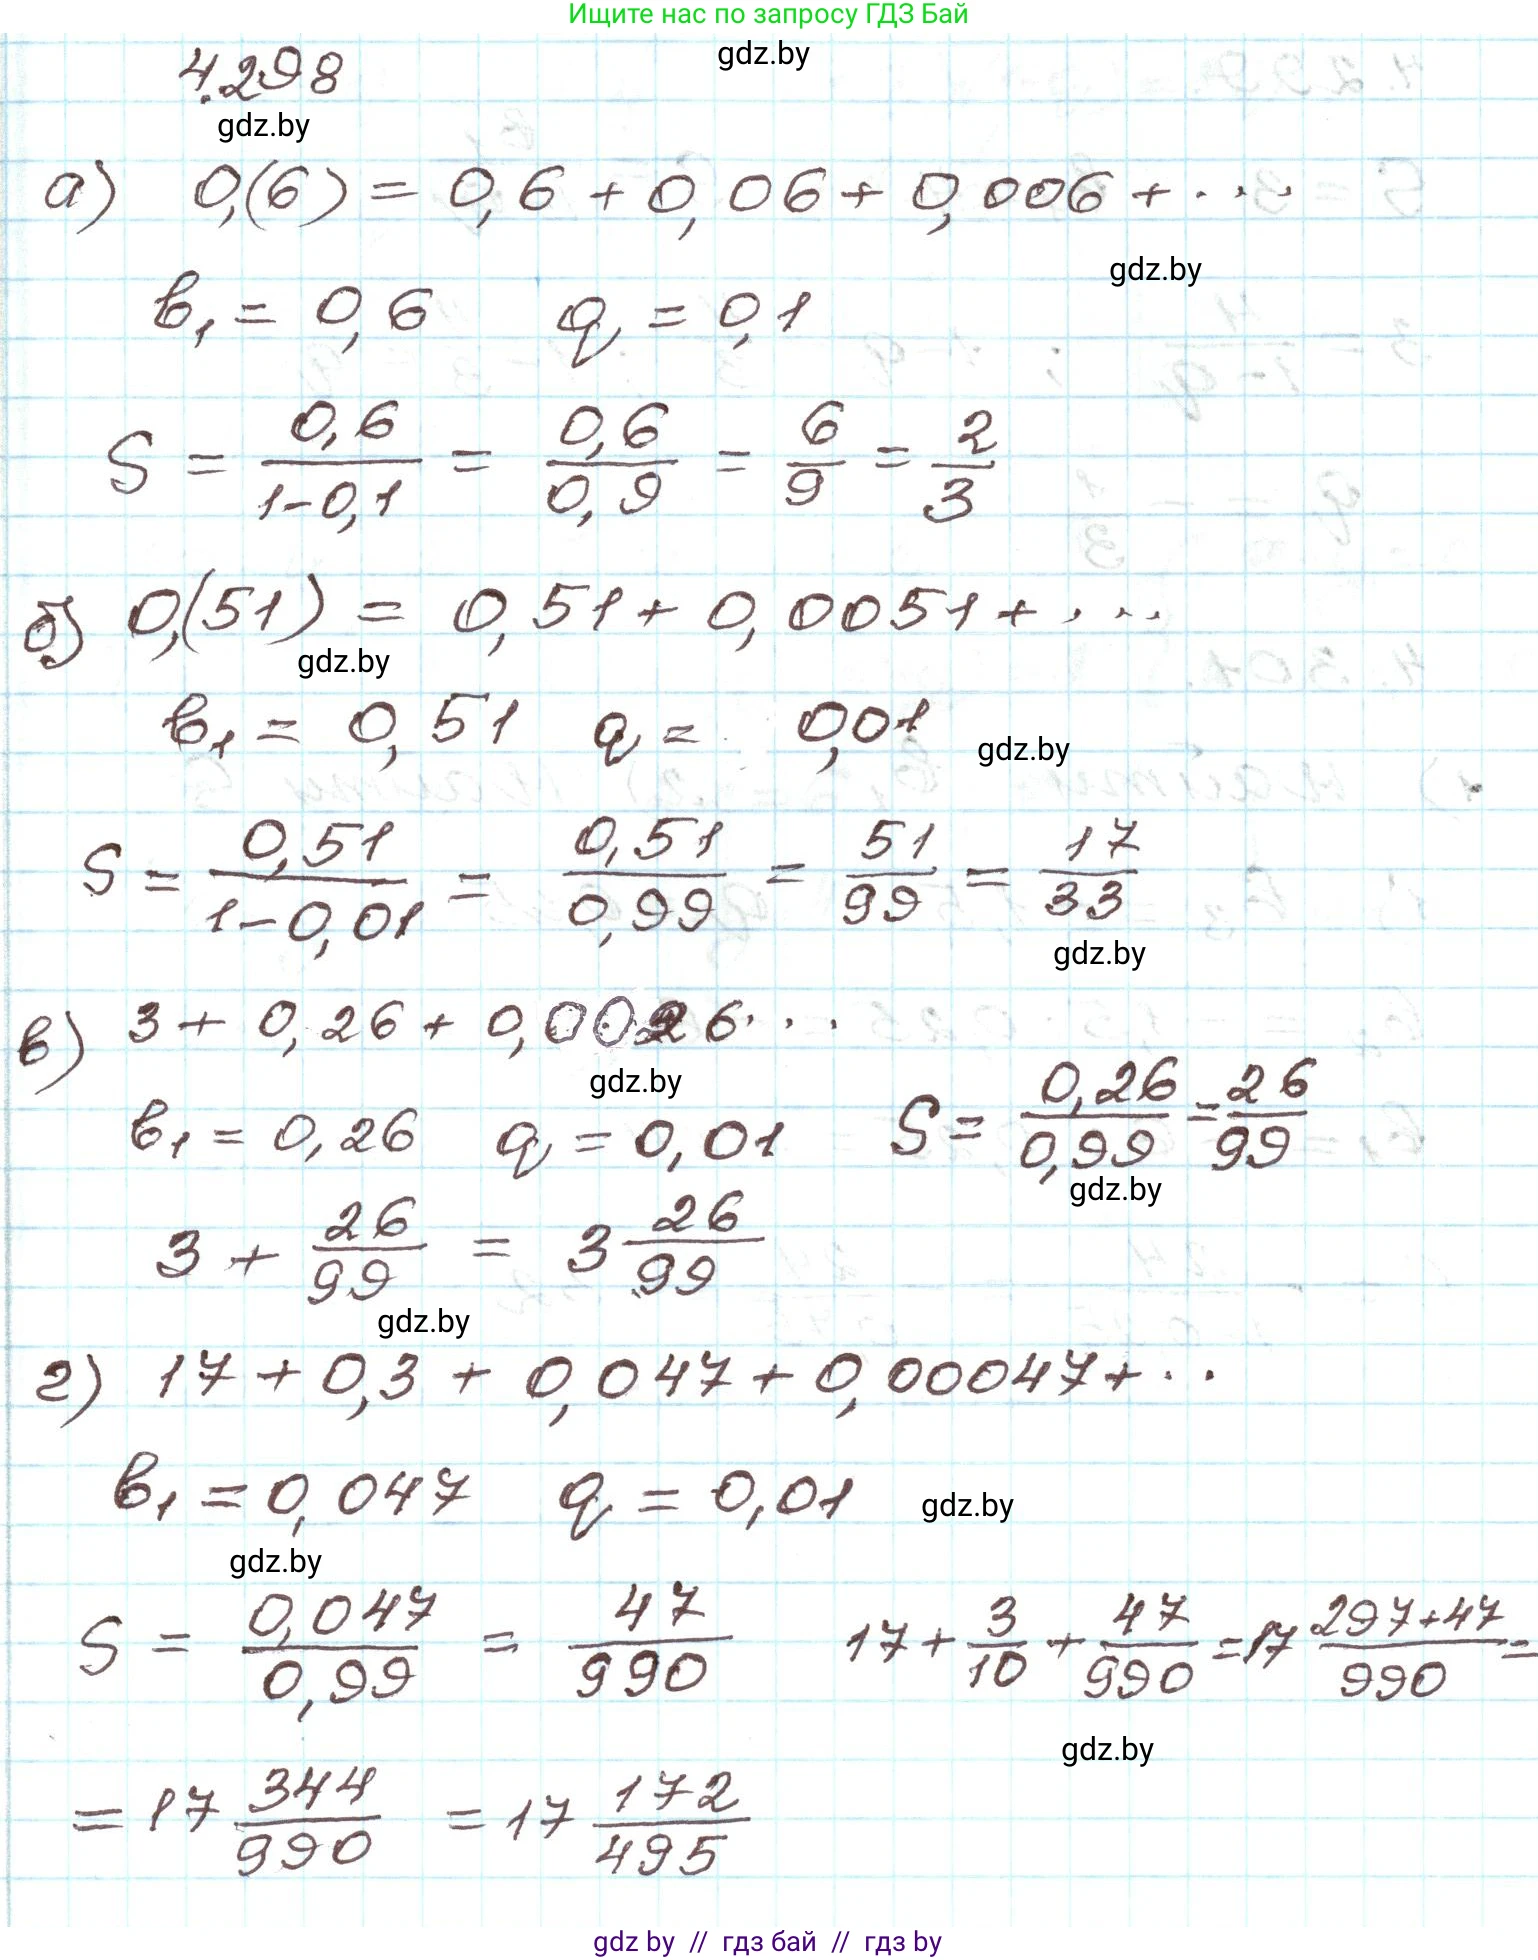 Ищите нас по запросу ГДЗ Бай
gdz.by
4.298
gdz.by
а) 0,(6) = 0,6 + 0,06 + 0,006 + ...
gdz.by
b₁ = 0,6 q = 0,1
S = 0,6/(1-0,1) = 0,6/0,9 = 6/9 = 2/3
б) 0,(51) = 0,51 + 0,0051 + ...
gdz.by
b₁ = 0,51 q = 0,01
gdz.by
S = 0,51/(1-0,01) = 0,51/0,99 = 51/99 = 17/33
gdz.by
в) 3 + 0,26 + 0,0026...
gdz.by
b₁ = 0,26 q = 0,01 S = 0,26/0,99 = 26/99
gdz.by
3 + 26/99 = 3 26/99
gdz.by
г) 17 + 0,3 + 0,047 + 0,00047 + ...
b₁ = 0,047 q = 0,01
gdz.by
gdz.by
S = 0,047/0,99 = 47/990 17 + 3/10 + 47/990 = 17 (297+47)/990 =
gdz.by
= 17 344/990 = 17 172/495
gdz.by // гдз бай // гдз by